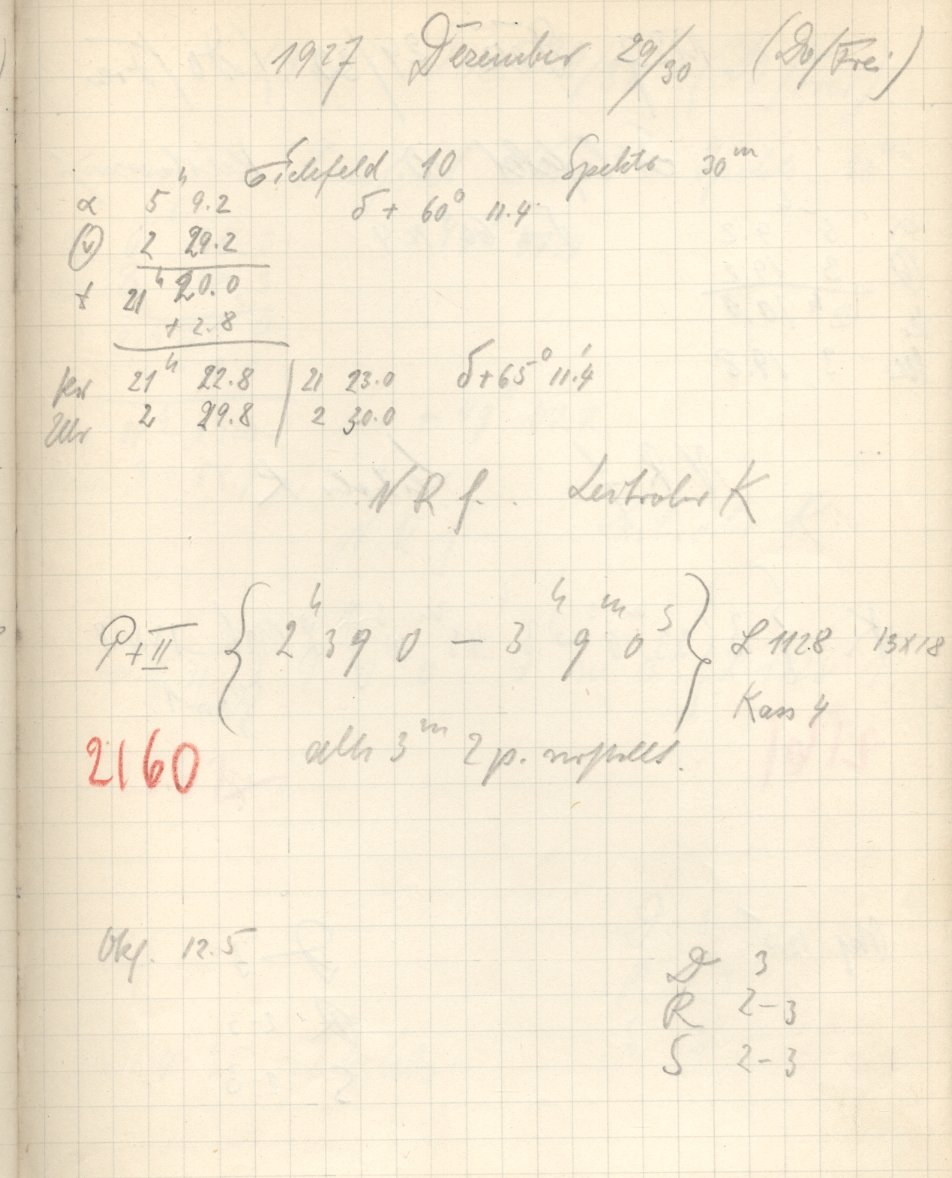 1927 Dezember 29/30 (Do/Frei)
Eichfeld 10 Spektr 30ᵐ
α 5ʰ 9.2 δ + 60° 11.4
2 29.2
t 21ʰ 20.0
+ 2.8
21ʰ 22.8 | 21 23.0 δ + 65° 11.4'
Uhr 2 29.8 | 2 30.0
N R f. Leitrohr K
P + II { 2ʰ 39 0 — 3ʰ 9ᵐ 0ˢ } L 1128 13x18
Kass 4
2160 alle 3ᵐ 2 p. verstellt.
Okf. 12.5
D 3
R 2-3
S 2-3